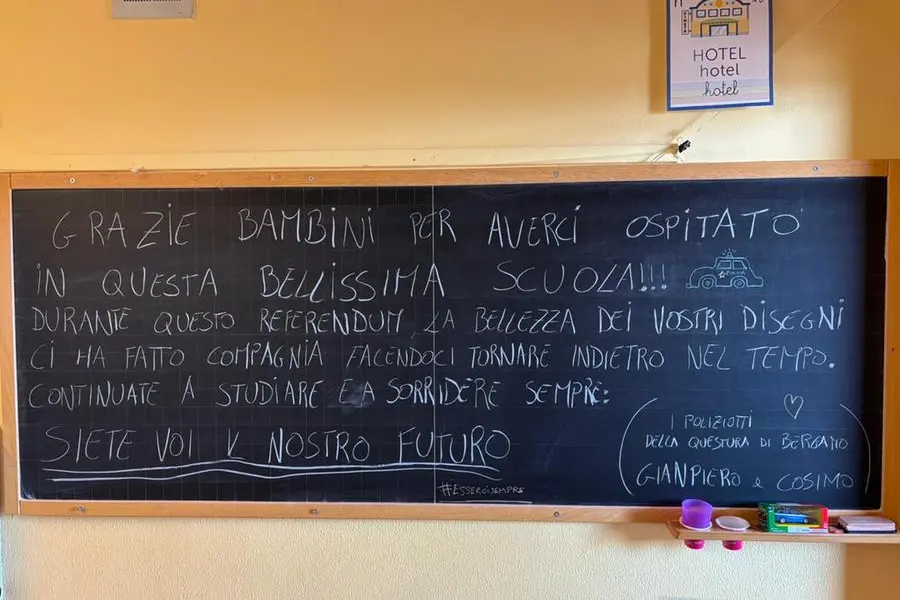 HOTEL
hotel
hotel
GRAZIE BAMBINI PER AVERCI OSPITATO
IN QUESTA BELLISSIMA SCUOLA!!!
DURANTE QUESTO REFERENDUM, LA BELLEZZA DEI VOSTRI DISEGNI
CI HA FATTO COMPAGNIA FACENDOCI TORNARE INDIETRO NEL TEMPO.
CONTINUATE A STUDIARE E A SORRIDERE SEMPRE:
SIETE VOI IL NOSTRO FUTURO
#ESSERCISEMPRE
I POLIZIOTTI
DELLA QUESTURA DI BERGAMO
GIANPIERO e COSIMO